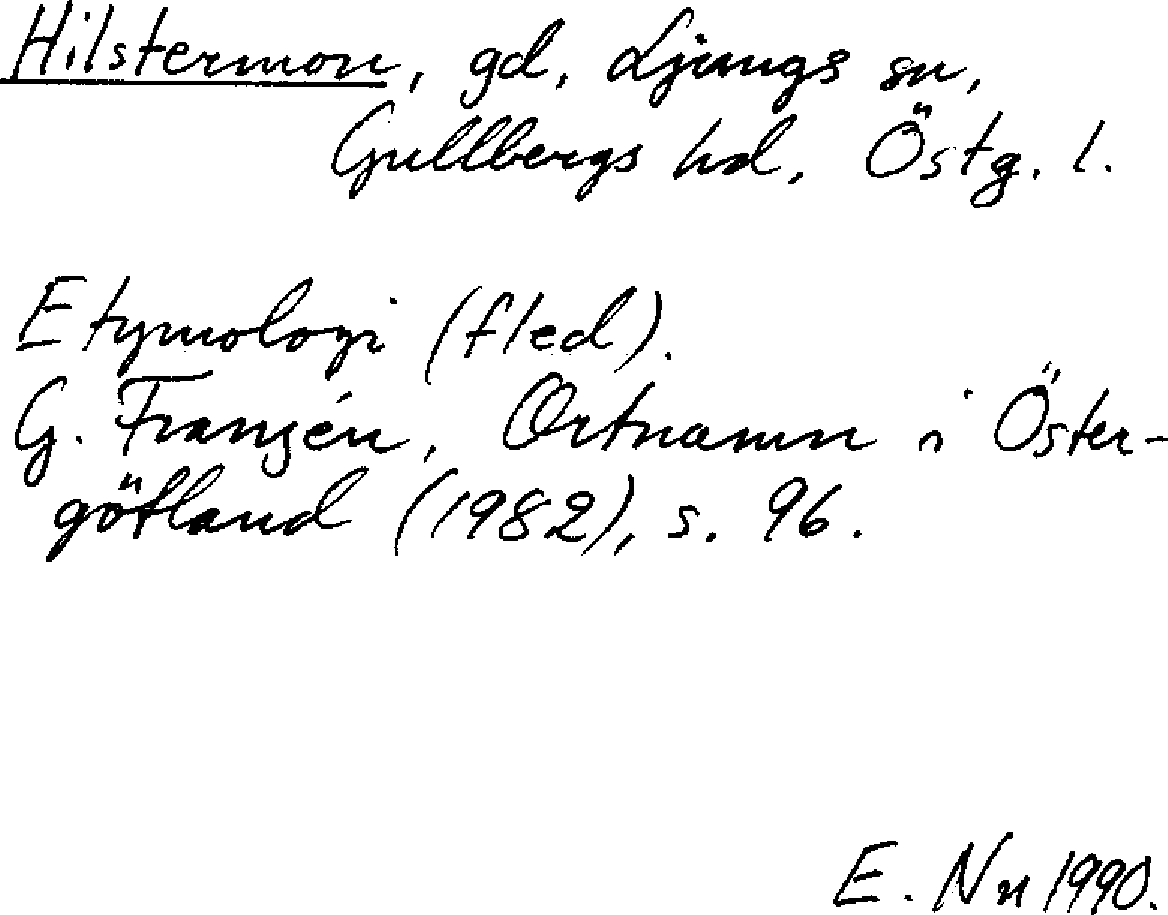 Hilstermon, gd, Ljungs sn,
Gullbergs hd, Östg. l.
Etymologi (fled).
G. Franzén, Ortnamn i Öster-
götland (1982), s. 96.
E. Nn 1990.